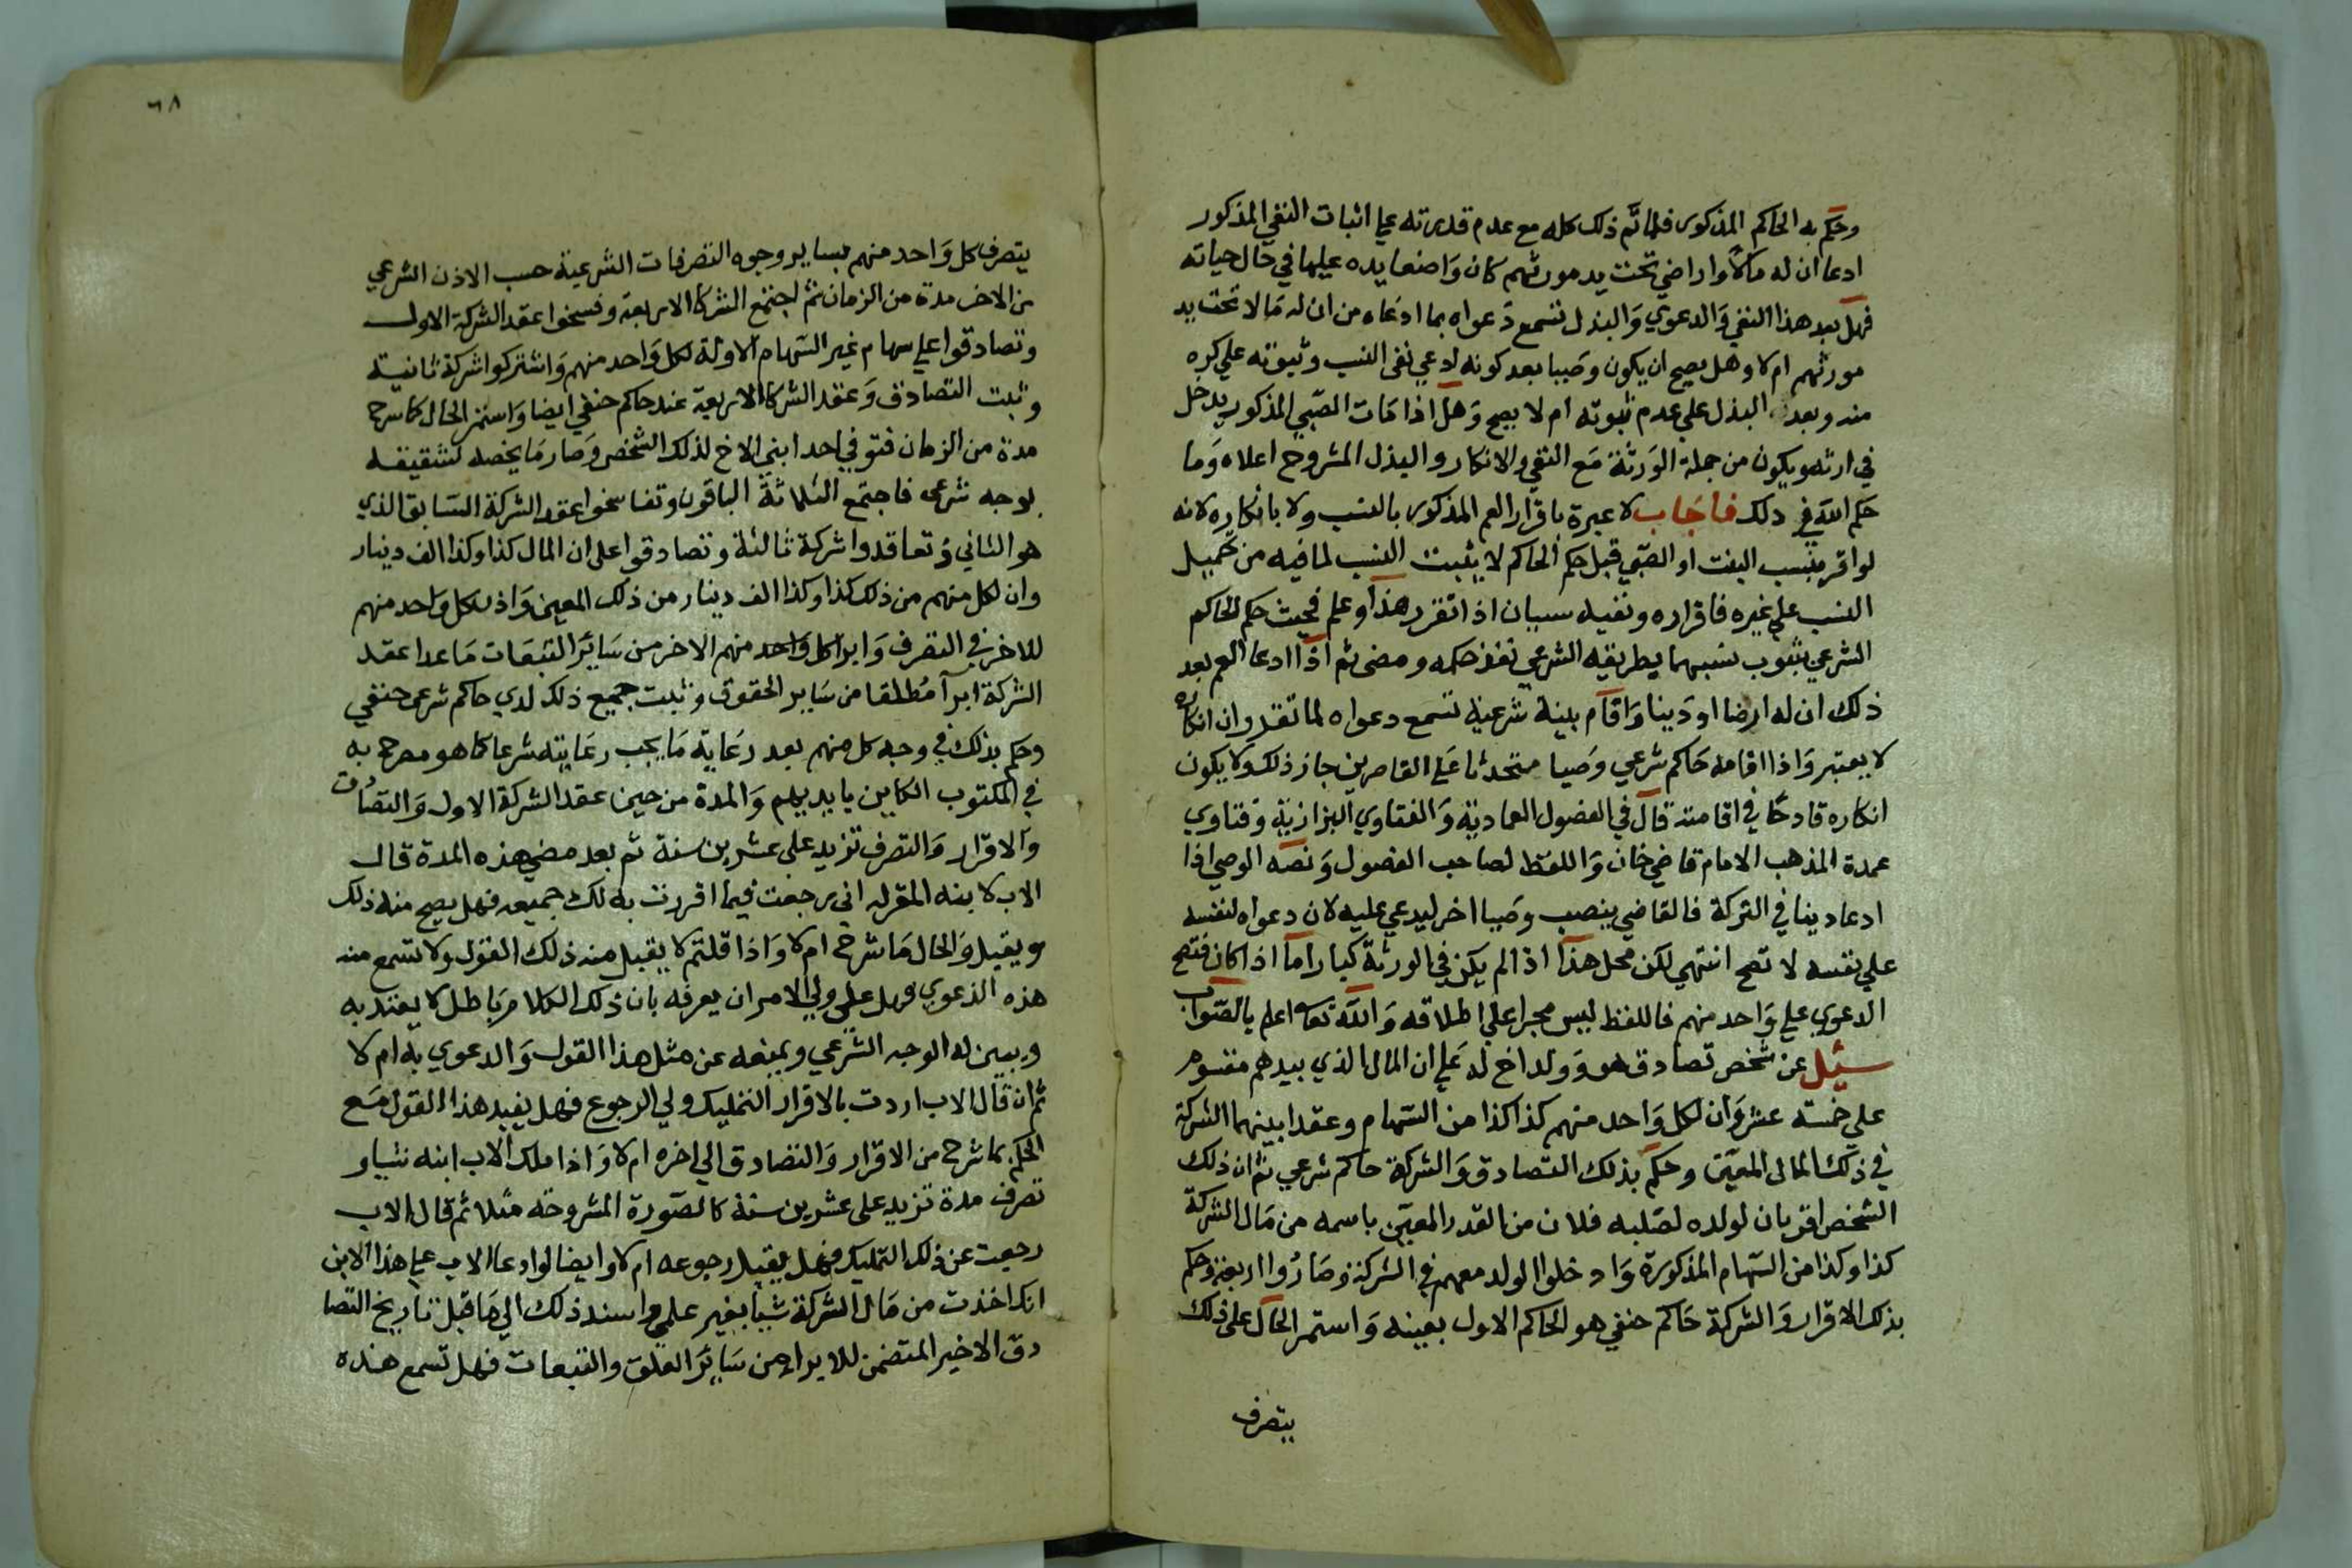 وحكم به الحاكم المذكور فلما تم ذلك كله مع عدم قدرته على اثبات النفي المذكور
ادعا ان له مالا واراضي تحت يد مورثهم كان واضعا يده عليها في حال حياته
فهل بعد هذا النفي والدعوي والبذل تسمع دعواه بما ادعاه من ان له مالا تحت يد
مورثهم ام لا وهل يصح ان يكون وصيا بعد كونه ادعي نفي النسب وثبوته علي كره
منه وبعد البذل علي عدم ثبوته ام لا يصح وهل اذا مات الصبي المذكور يدخل
في ارثه ويكون من جملة الورثة مع النفي والانكار والبذل المشروح اعلاه وما
حكم الله في ذلك فاجاب لا عبرة باقرار العم المذكور بالنسب ولا بانكاره لانه
لو اقر بنسب البنت او الصبي قبل حكم الحاكم لا يثبت النسب لما فيه من حميل
النسب علي غيره فاقراره ونفيه سيان اذا تقرر هذا وعلم فحيث حكم الحاكم
الشرعي بثبوت نسبهما بطريقه الشرعي نفذ حكمه ومضى ثم اذا ادعا العم بعد
ذلك ان له ارضا او دينا واقام بينة شرعية تسمع دعواه لما تقدم وان انكاره
لا يعتبر واذا اقامه حاكم شرعي وصيا متحدثا على القاصرين جاز ذلك ولا يكون
انكاره قادحا في اقامته قال في الفصول العمادية والفتاوي البزازية وفتاوي
عمدة المذهب الامام قاضي خان واللفظ لصاحب الفصول ونصه الوصي اذا
ادعا دينا في التركة فالقاضي ينصب وصيا اخر ليدعي عليه لان دعواه لنفسه
علي نفسه لا تصح انتهي لكن محل هذا اذا لم يكن في الورثة كبارا ما اذا كان فتصح
الدعوي علي واحد منهم فاللفظ ليس مجرا علي اطلاقه والله تعا اعلم بالصواب
سئل عن شخص تصادق هو وولد اخ له على ان المال الذي بيدهم مقسوم
علي خمسة عشر وان لكل واحد منهم كذا كذا من السهام وعقدا بينهما الشركة
في ذلك المال المعين وحكم بذلك التصادق والشركة حاكم شرعي ثم ان ذلك
الشخص اقر بان لولده لصلبه فلان من القدر المعين باسمه من مال الشركة
كذا وكذا من السهام المذكورة وادخلوا الولد معهم في الشركة وصاروا اربعة وحكم
بذلك الاقرار والشركة حاكم حنفي هو الحاكم الاول بعينه واستمر الحال على ذلك
يتصرف
٦٨
يتصرف كل واحد منهم بساير وجوه التصرفات الشرعية حسب الاذن الشرعي
من الاخر مدة من الزمان ثم اجتمع الشركا الاربعة وفسخوا عقد الشركة الاول
وتصادقوا علي سهام غير السهام الاولة لكل واحد منهم واشتركوا شركة ثانية
وثبت التصادق وعقد الشركا الاربعة عند حاكم حنفي ايضا واستمر الحال كما شرح
مدة من الزمان فتوفي احد ابني الاخ لذلك الشخص وصار ما يخصه لشقيقه
بوجه شرعي فاجتمع الثلاثة الباقون وتفاسخوا عقد الشركة السابق الذي
هو الثاني وتعاقدوا شركة ثالثة وتصادقوا على ان المال كذا وكذا الف دينار
وان لكل منهم من ذلك كذا وكذا الف دينار من ذلك المعين واذن كل واحد منهم
للاخر في التصرف وابرا كل واحد منهم الاخر من ساير التبعات ما عدا عقد
الشركة ابرآ مطلقا من ساير الحقوق وثبت جميع ذلك لدي حاكم شرعي حنفي
وحكم بذلك في وجه كل منهم بعد رعاية ما يجب رعايته شرعا كما هو مصرح به
في المكتوب الكاين بايديهم والمدة من حين عقد الشركة الاول والتصادق
والاقرار والتصرف تزيد على عشرين سنة ثم بعد مضي هذه المدة قال
الاب لابنه المقر له اني رجعت فيما اقررت به لك جميعه فهل يصح منه ذلك
ويقبل والحال ما شرح ام لا واذا قلتم لا يقبل منه ذلك القول ولا تسمع منه
هذه الدعوي فهل على ولي الامر ان يعرفه بان ذلك الكلام باطل لا يعتد به
ويبين له الوجه الشرعي ويمنعه عن مثل هذا القول والدعوي به ام لا
ثم ان قال الاب اردت بالاقرار التمليك ولي الرجوع فهل يفيد هذا القول مع
الحكم بما شرح من الاقرار والتصادق الي اخره ام لا واذا ملك الاب ابنه شيا و
تصرف مدة تزيد على عشرين سنة كالصورة المشروحة مثلا ثم قال الاب
رجعت عن ذلك التمليك فهل يقبل رجوعه ام لا وايضا لو ادعا الاب على هذا الابن
انك اخذت من مال الشركة شيا بغير علمي واسند ذلك الي ما قبل تاريخ التصا
دق الاخير المتضمن للابراء من ساير العلق والتبعات فهل تسمع هذه